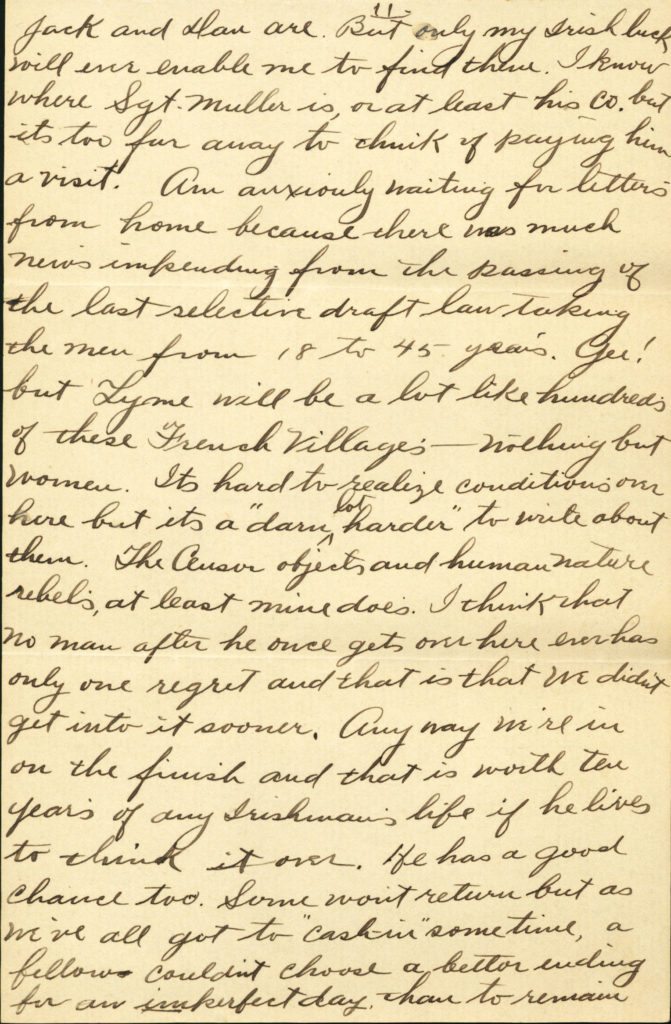 11.
Jack and Dan are. But only my Irish luck
will ever enable me to find them. I know
where Sgt. Muller is, or at least his Co. but
its too far away to think of paying him
a visit. Am anxiously waiting for letters
from home because there was much
news impending from the passing of
the last selective draft law taking
the men from 18 to 45 years. Gee!
but Lyme will be a lot like hundreds
of these French Villages — nothing but
women. Its hard to realize conditions over
here but its a "darn lot harder" to write about
them. The Censor objects and human nature
rebels, at least mine does. I think that
no man after he once gets over here ever has
only one regret and that is that we didn't
get into it sooner. Any way we're in
on the finish and that is worth ten
years of any Irishman's life if he lives
to think it over. He has a good
chance too. Some wont return but as
we've all got to "cash in" sometime, a
fellow couldn't choose a better ending
for an imperfect day, than to remain